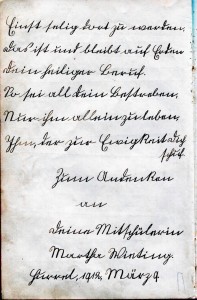 Einst selig dort zu werden,
Das ist und bleibt auf Erden
Dein heiliger Beruf.
So sei all dein Bestreben,
Nur ihm allein zu leben,
Ihm, der zur Ewigkeit dich
schuf.
Zum Andenken
an
Deine Mitschülerin
Martha Wieting.
März